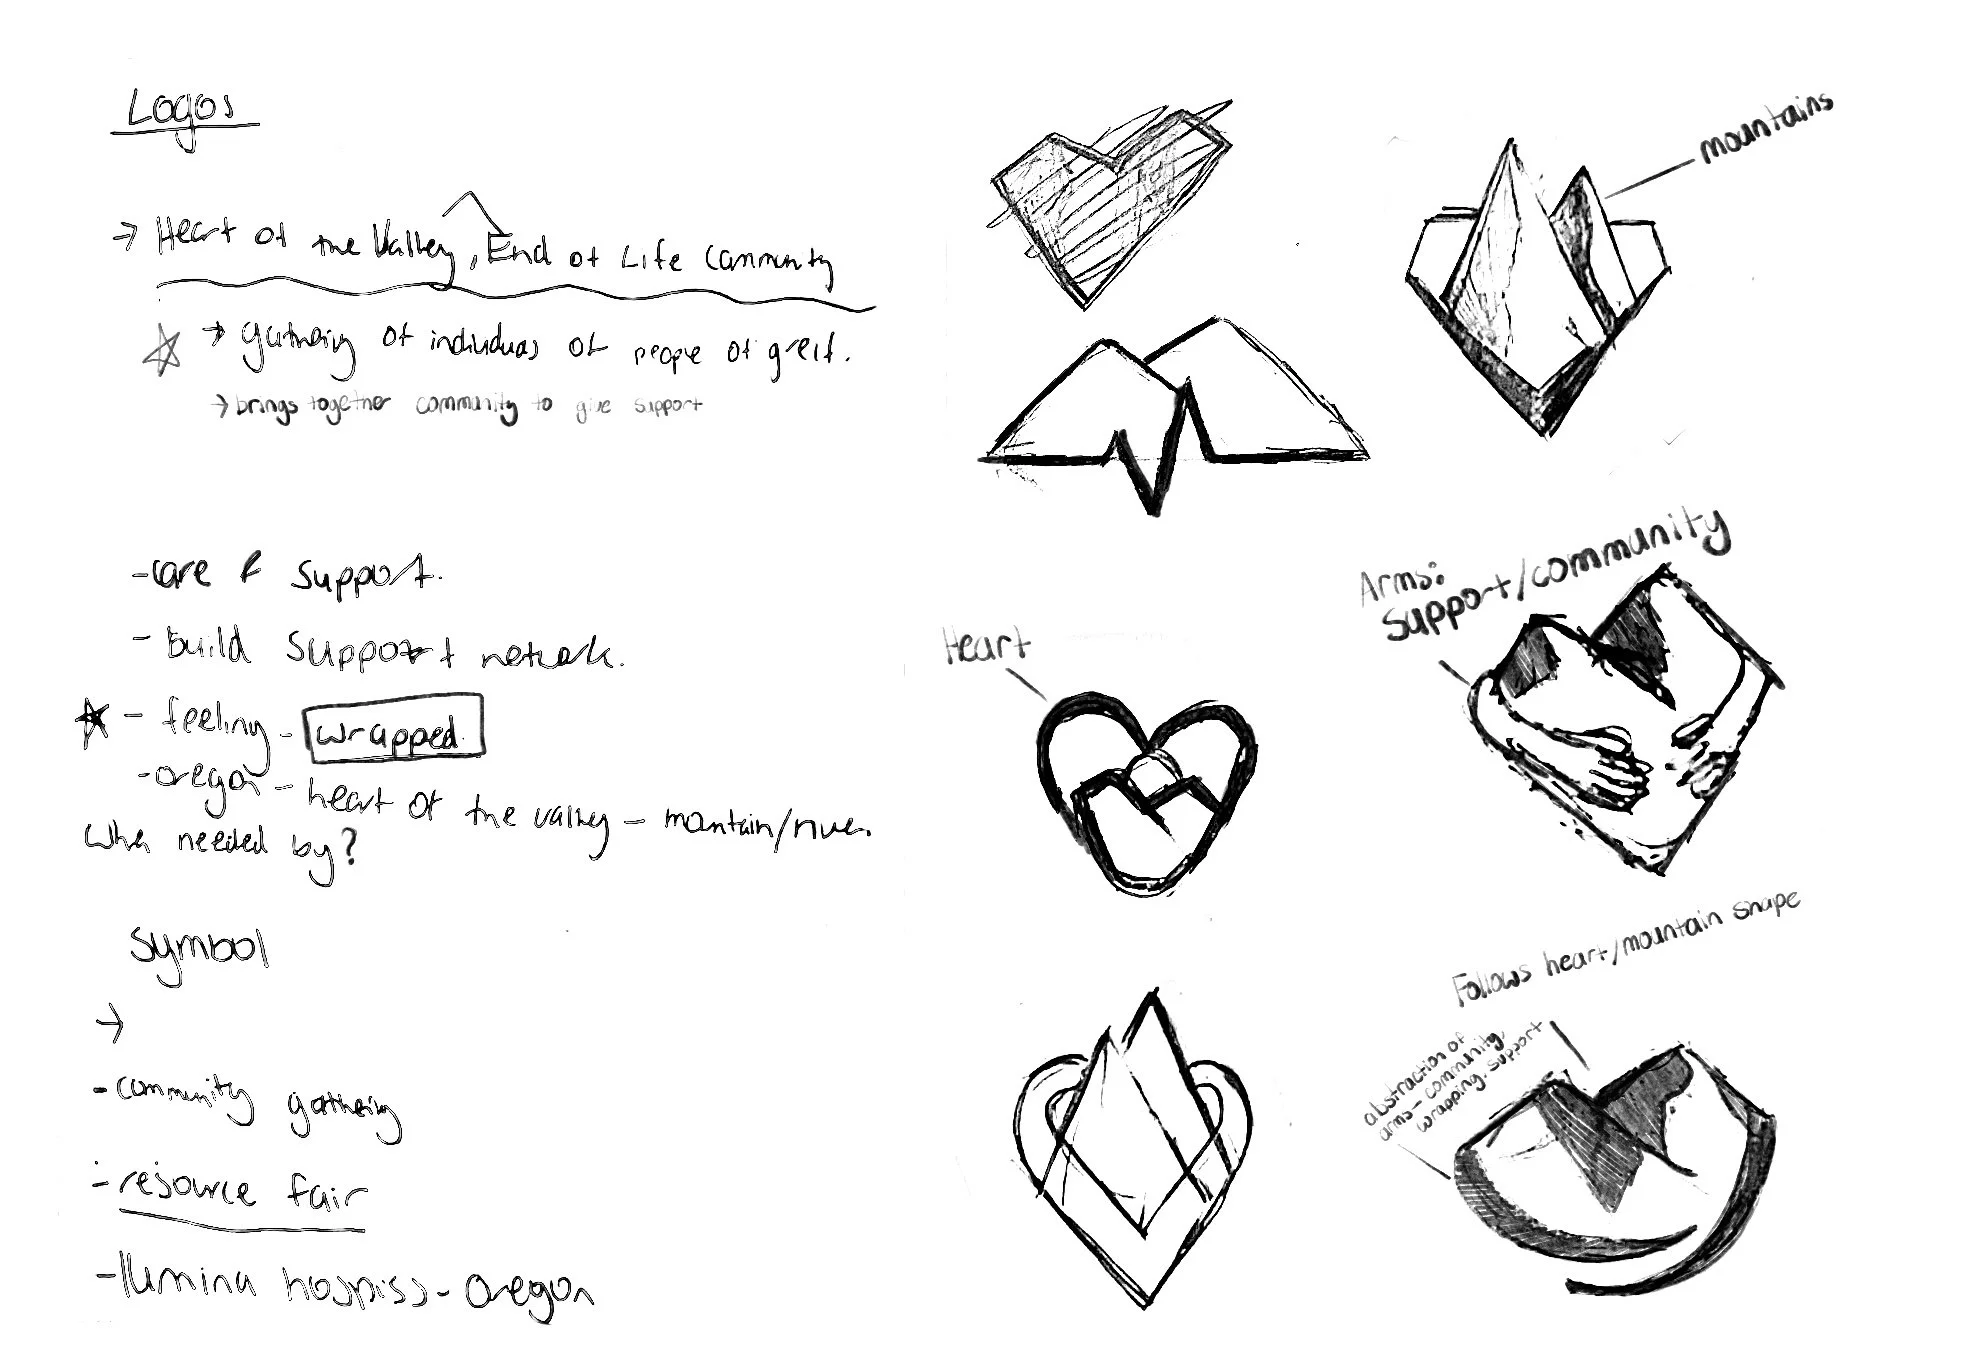 Logos
→ Heart of the Valley, End of Life Community
→ gathering of individuals of people of greif.
→ brings together community to give support
- care & support.
- build support network.
- feeling - wrapped.
- oregon - heart of the valley - mountain/river.
when needed by?
Symbol
→
- community gathering
- resource fair
- Ilumina hospiss - Oregon
mountains
Arms:
Support/community
Heart
Follows heart/mountain shape
abstraction of
arms - community,
wrapping, support